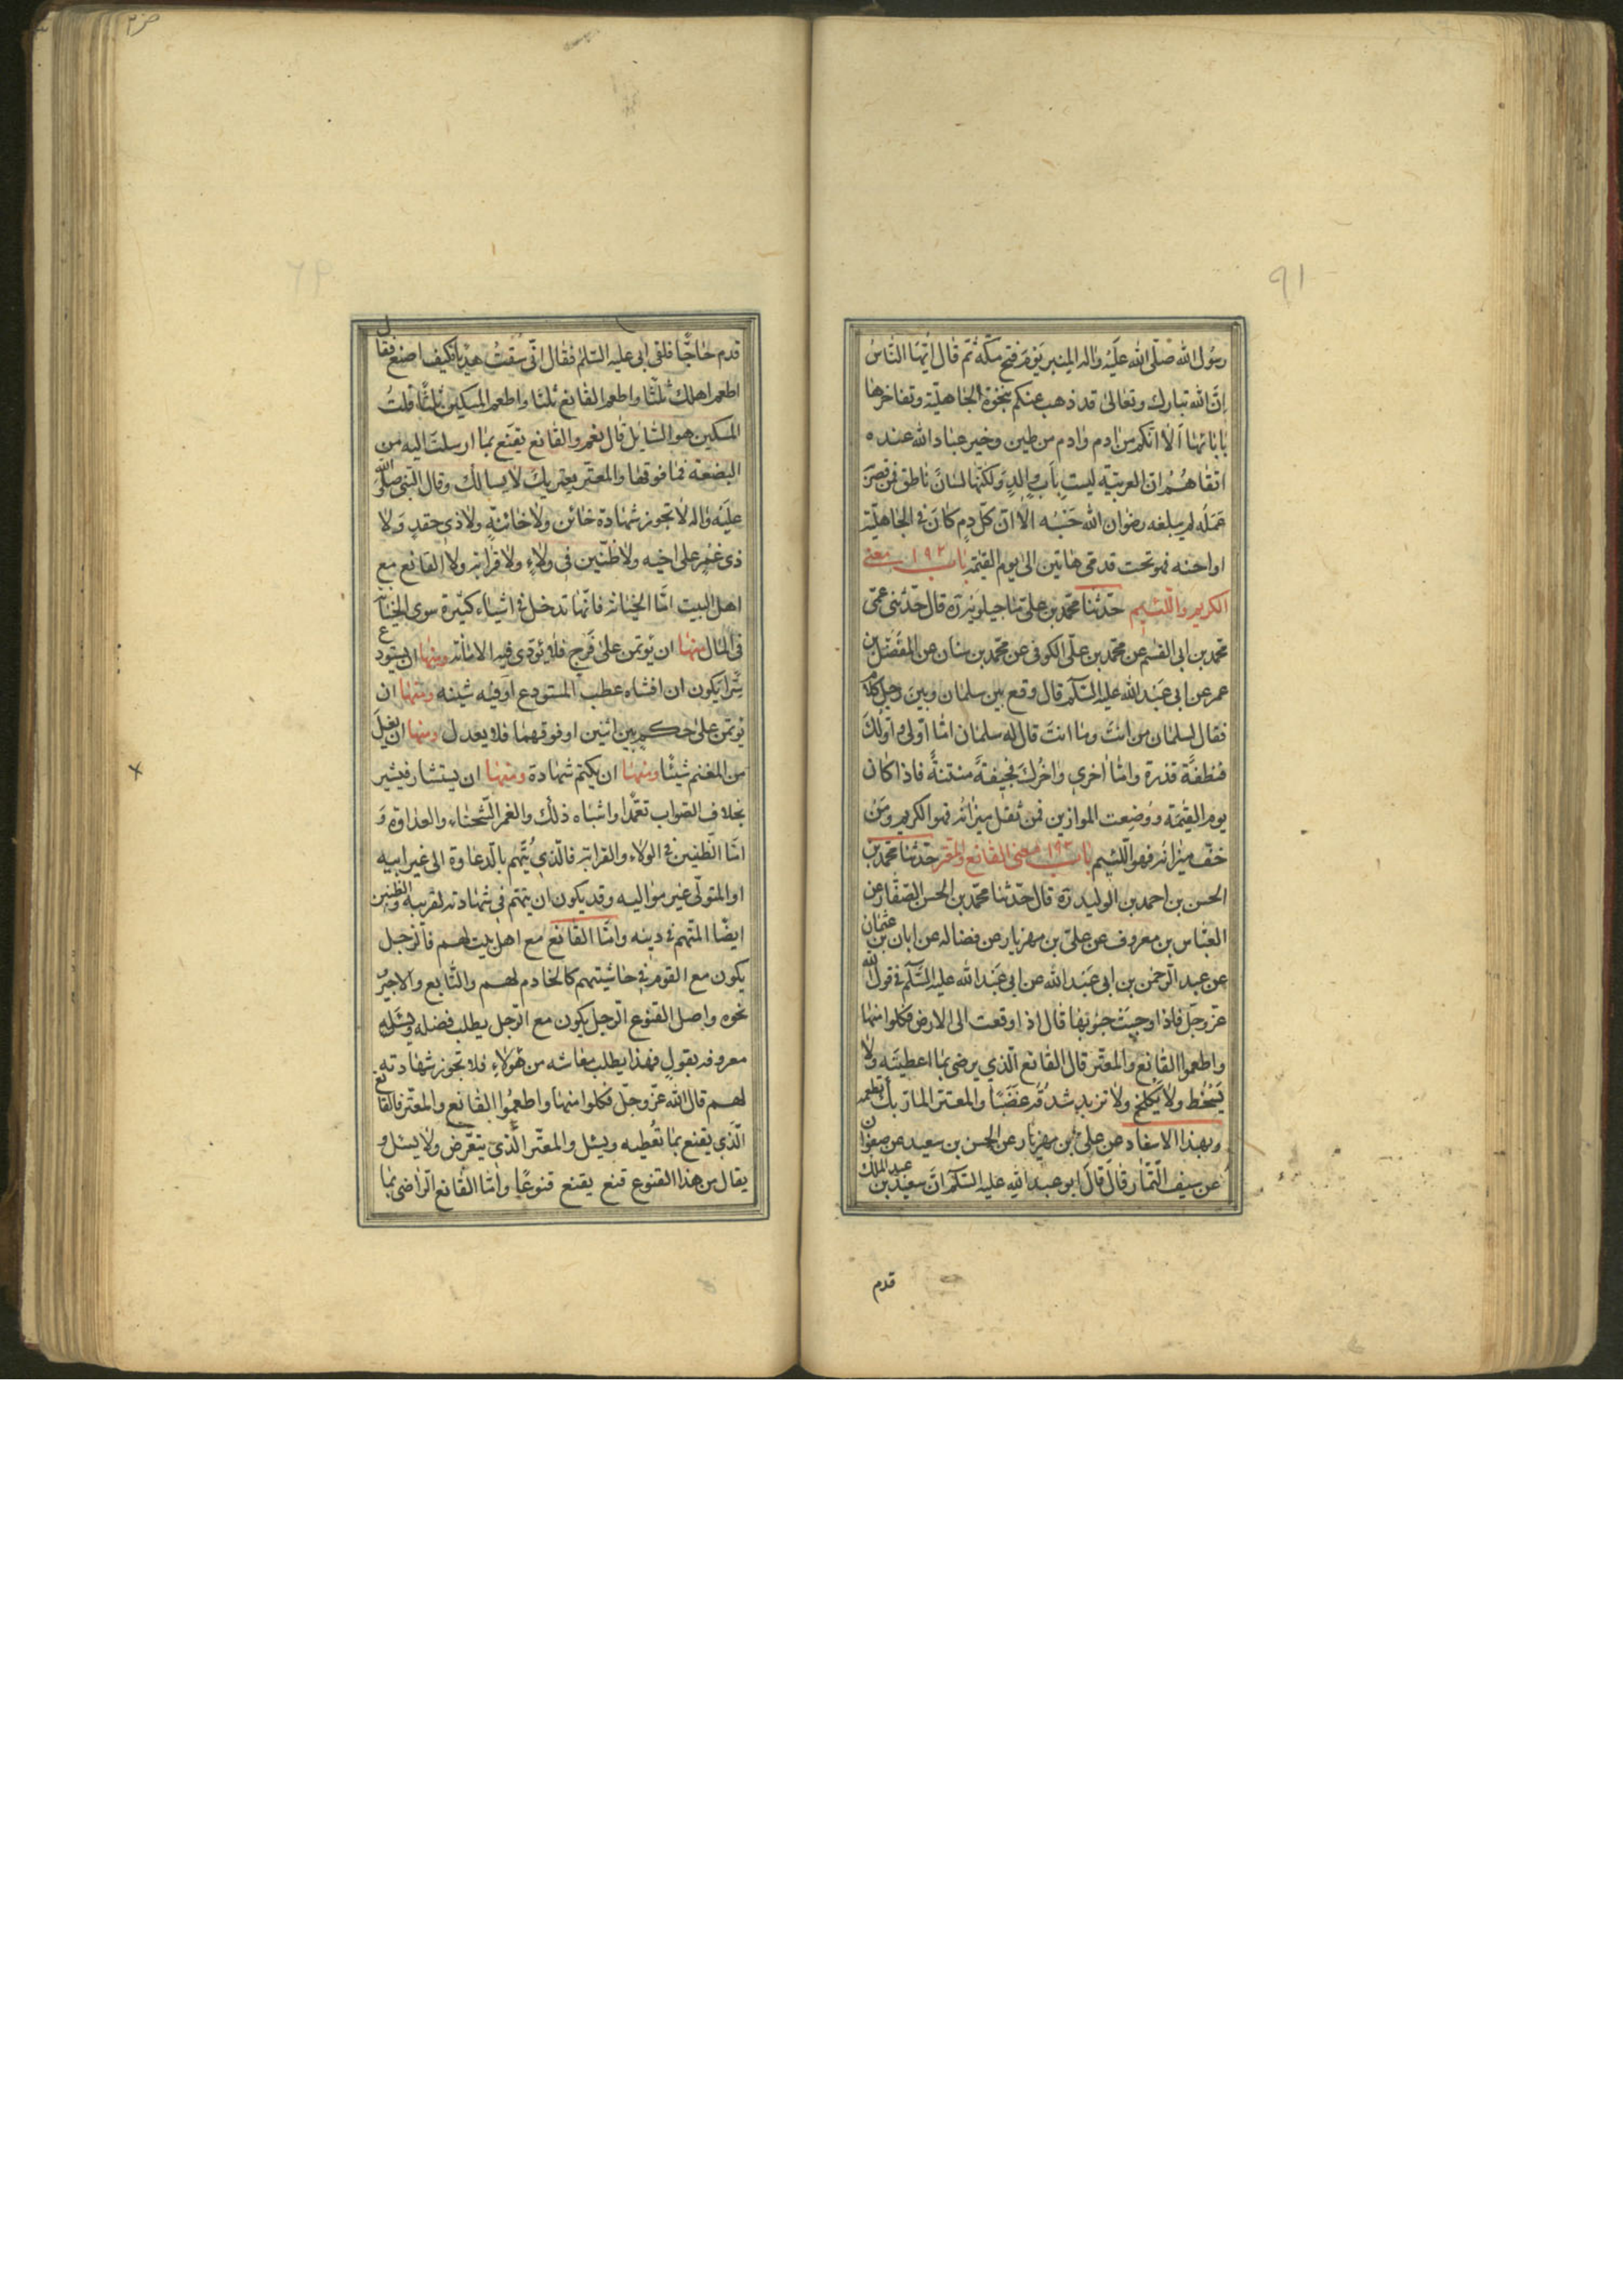 رسول الله صلّى الله عليه واله المنبر يوم فتح مكّة ثم قال ايّها النّاس
انّ الله تبارك وتعالى قد ذهب عنكم بنخوة الجاهليّة وتفاخرها
بابائها الا انّكم من ادم وادم من طين وخير عباد الله عنده
اتقاهم انّ العربيّة ليست باب والدٍ ولكنّها لسان ناطق فمن قصر
عمله لم يبلغه رضوان الله حسبه الا انّ كلّ دم كان فى الجاهليّة
او احنه فهو تحت قدمى هاتين الى يوم القيمة باب ١٩٢ معنى
الكريم واللّئيم حدّثنا محمّد بن على ماجيلويه ره قال حدّثنى عمّى
محمّد بن ابى القسم عن محمّد بن على الكوفى عن محمّد بن سنان عن المفضّل بن
عمر عن ابى عبد الله عليه السّلم قال وقع بين سلمان وبين رجل كلام
فقال لسلمان من انت وما انت قال له سلمان امّا اولى واولك
فنطفة قذرة وامّا اخرى واخرك فجيفة منتنة فاذا كان
يوم القيمة ووضعت الموازين فمن ثقل ميزانه فهو الكريم ومن
خفّ ميزانه فهو اللّئيم باب ١٩٣ معنى القانع والمعتر حدّثنا محمّد بن
الحسن بن احمد بن الوليد ره قال حدّثنا محمّد بن الحسن الصّفار عن
العبّاس بن معروف عن علىّ بن مهزيار عن فضاله عن ابان بن عثمان
عن عبد الرّحمن بن ابى عبد الله عن ابى عبد الله عليه السّلم فى قول الله
عزّ وجلّ فاذا وجبت جنوبها قال اذا وقعت الى الارض فكلوا منها
واطعموا القانع والمعتّر قال القانع الّذي يرضى بما اعطيته ولا
يسخط ولا يكلح ولا تزبد شدقه غضبًا والمعتر المارّ بك تطعمه
وبهذا الاسناد عن علىّ بن مهزيار عن الحسن بن سعيد عن صفوان
عن سيف التّمّار قال قال ابو عبد الله عليه السّلم انّ سعيد بن عبد الملك
قدم
قدم حاجًّا فلقى ابى عليه السّلم فقال انّى سقت هديًا فكيف اصنع فقال
اطعم اهلك ثلثًا واطعم القانع ثلثا واطعم المسكين ثلثًا قلت
المسكين هو السّايل قال نعم والقانع يقنع بما ارسلت اليه من
البضعة فما فوقها والمعتر يعتريك لا يسالك وقال النبى صلى الله
عليه واله لا تجوز شهادة خائن ولا خائنة ولا ذى حقد ولا
ذى غمر على اخيه ولا ظنين فى ولاء ولا قرابة ولا القانع مع
اهل البيت امّا الخيانة فانّها تدخل فى اشياء كثيرة سوى الخيانة
فى المال منها ان يؤتمن على فرج فلا يؤدّى فيه الامانة ومنها ان يستودع
سرًّا يكون ان افشاه عطب المستودع او فيه شينه ومنها ان
يؤتمن على حكم بين اثنين او فوقهما فلا يعدل ومنها ان يغلّ
من المغنم شيئًا ومنها ان يكتم شهادة ومنها ان يستشار فيشير
بخلاف الصّواب تعمّدا واشباه ذلك والغمر الشّحناء والعداوة و
امّا الظّنين فى الولاء والقرابة فالّذى يتّهم بالدّعاوة الى غير ابيه
او المتولّى غير مواليه وقد يكون ان يتهم فى شهادته لقريبه والظنين
ايضًا المتهم فى دينه وامّا القانع مع اهل بيت لهم فالرّجل
يكون مع القوم فى حاشيتهم كالخادم لهم والتّابع والاجير و
نحوه واصل القنوع الرّجل يكون مع الرّجل يطلب فضله ويسئله
معروفه بقول فهذا يطلب معاشه من هؤلاء فلا تجوز شهادته
لهم قال الله عزّ وجلّ فكلوا منها واطعموا القانع والمعتّر فالقانع
الّذى يقنع بما تعطيه ويسئل والمعتّر الّذى يتعرّض ولا يسئل و
يقال من هذا القنوع قنع يقنع قنوعًا وامّا القانع الرّاضى بما